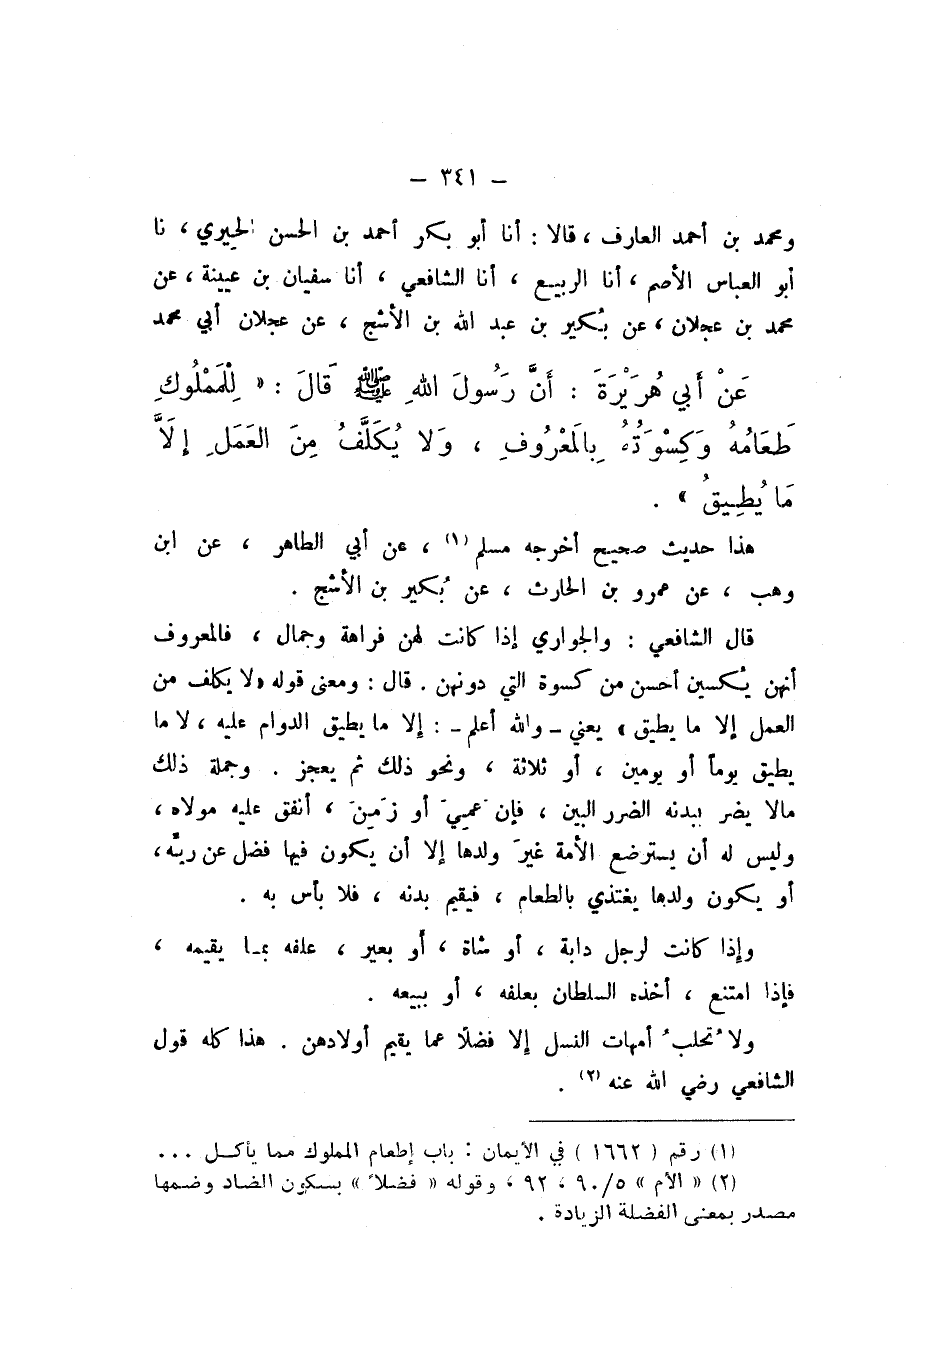 – ٣٤١ –
ومحمد بن أحمد العارف ، قالا : أنا أبو بكر أحمد بن الحسن الحيري ، نا
أبو العباس الأصم ، أنا الربيع ، أنا الشافعي ، أنا سفيان بن عيينة ، عن
محمد بن عجلان ، عن بُكير بن عبد الله بن الأشج ، عن عجلان أبي محمد
عَنْ أَبي هُرَيْرَةَ : أَنَّ رَسُولَ اللهِ ﷺ قَالَ : « لِلْمَمْلُوكِ
طَعَامُهُ وَكِسْوَتُهُ بِالمَعْرُوفِ ، وَلا يُكَلَّفُ مِنَ العَمَلِ إلَّا
مَا يُطِيقُ » .
هذا حديث صحيح أخرجه مسلم (١) ، عن أبي الطاهر ، عن ابن
وهب ، عن عمرو بن الحارث ، عن بُكير بن الأشج .
قال الشافعي : والجواري إذا كانت لهن فراهة وجمال ، فالمعروف
أنهن يُكسين أحسن من كسوة التي دونهن . قال : ومعنى قوله «لا يكلف من
العمل إلا ما يطيق » يعني ــ والله أعلم ــ : إلا ما يطيق الدوام عليه ، لا ما
يطيق يوماً أو يومين ، أو ثلاثة ، ونحو ذلك ثم يعجز . وجملة ذلك
مالا يضر ببدنه الضرر البين ، فإن عَمِيَ أو زَمِنَ ، أنفق عليه مولاه ،
وليس له أن يسترضع الأمة غيرَ ولدها إلا أن يكون فيها فضل عن ريِّه،
أو يكون ولدها يغتذي بالطعام ، فيقيم بدنه ، فلا بأس به .
وإذا كانت لرجل دابة ، أو شاة ، أو بعير ، علفه بما يقيمه ،
فإذا امتنع ، أخذه السلطان بعلفه ، أو ببيعه .
ولا تُحلبُ أمهات النسل إلا فضلًا عما يقيم أولادهن . هذا كله قول
الشافعي رضي الله عنه (٢) .
(١) رقم ( ١٦٦٢ ) في الأيمان : باب إطعام المملوك مما يأكل ...
(٢) « الأم » ٥/٩٠ ، ٩٢ ، وقوله « فضلاً » بسكون الضاد وضمها
مصدر بمعنى الفضلة الزيادة .